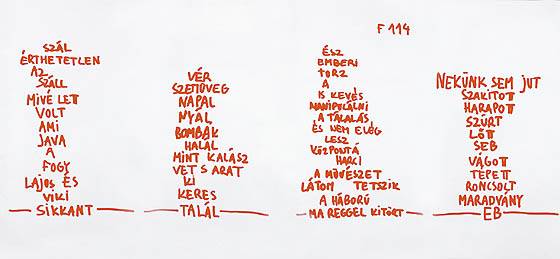 F 114
SZÁL
ÉRTHETETLEN
AZ
SZÁLL
MIVÉ LETT
VOLT
AMI
JAVA
A
FOGY
LAJOS ÉS
VIKI
SIKKANT
VÉR
SZEMÜVEG
NAPAL
NYÁL
BOMBÁK
HALÁL
MINT KALÁSZ
VET S ARAT
KI
KERES
TALÁL
ÉSZ
EMBERI
TORZ
A
IS KEVÉS
MANIPULÁLNI
A TÁLALÁS
ÉS NEM ELÓG
LESZ
KÖZPONTÁ
HARKI
A MŰVÉSZET
LÁTOM TETSZIK
A HÁBORÚ
MA REGGEL KITÖRT
NEKÜNK SEM JUT
SZAKÍTOTT
HARAPOTT
SZÚRT
LŐTT
SEB
VÁGOTT
TÉPETT
RONCSOLT
MARADVÁNY
EB